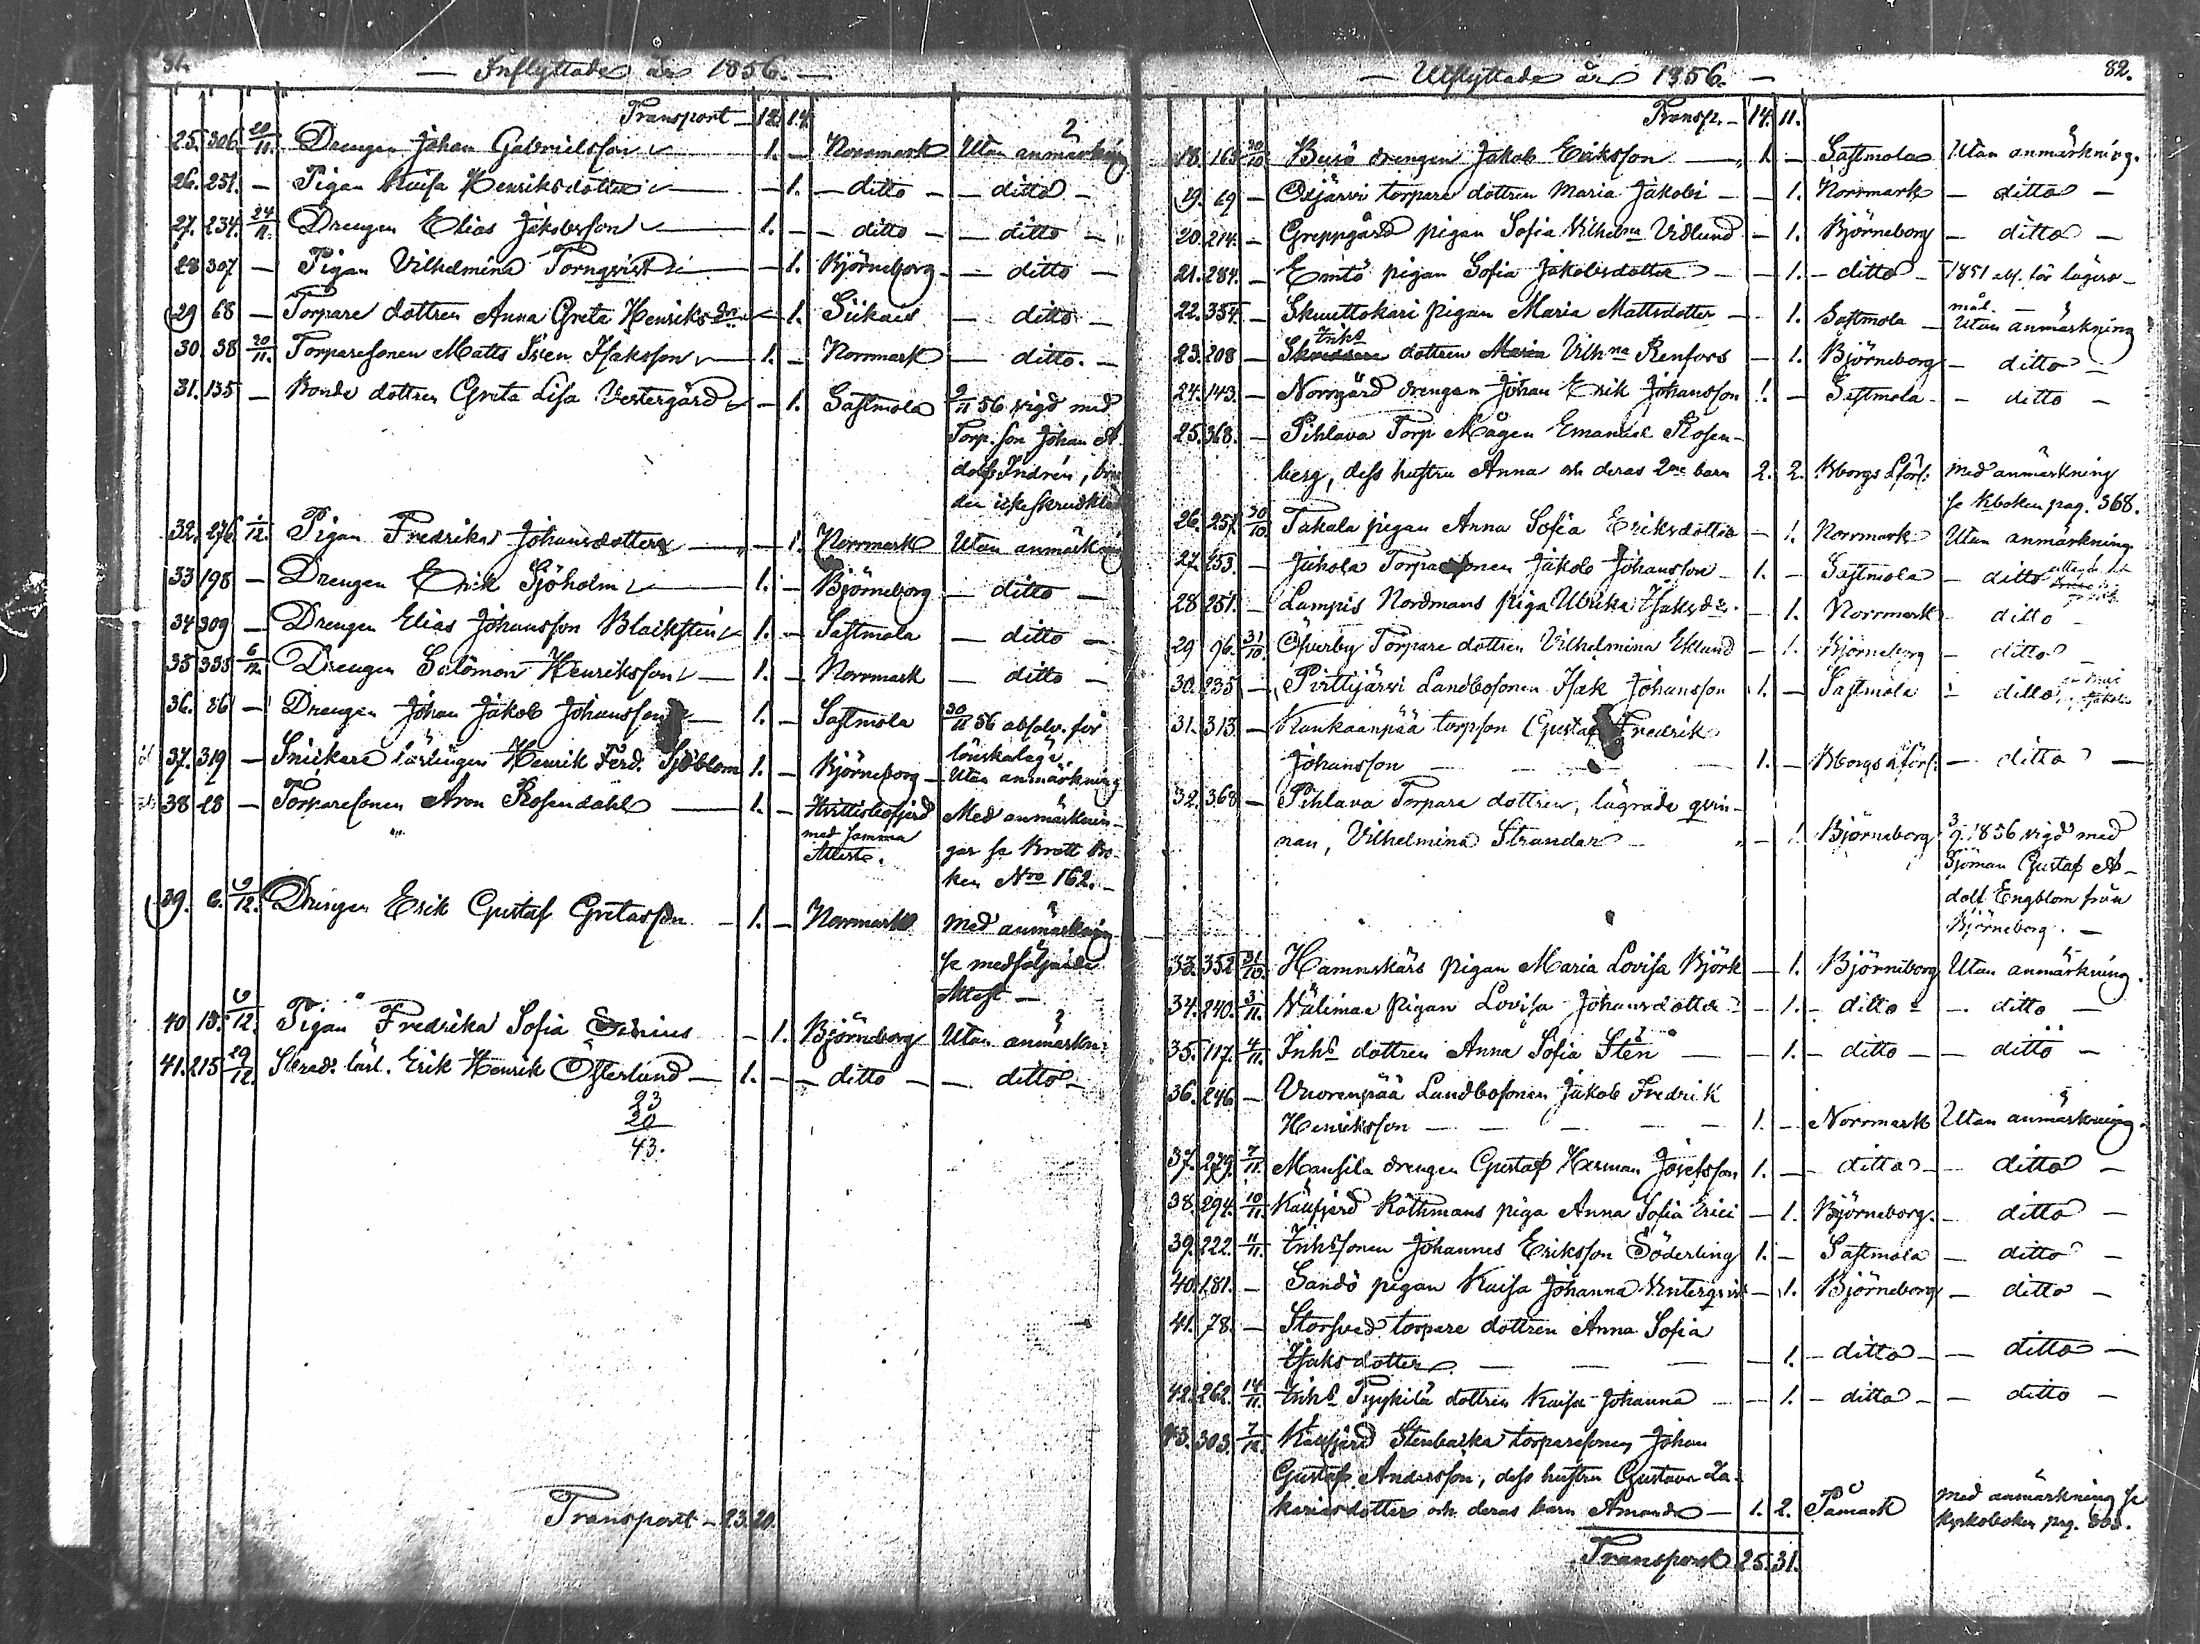 81.
— Inflyttade år 1856. —
Transport — 12. 14.
25. 306. 20/11. Drengen Johan Gabrielsson — 1. — Norrmark Utan anmärkning
26. 251. — Pigan Kaisa Henriksdotter — — 1. — ditto — — ditto —
27. 234. 24/11. Drengen Elias Jakobsson — 1. — — ditto — — ditto —
28 307 — Pigan Vilhelmina Tornqvist — — 1. Björneborg — ditto —
29 68 — Torpare dottren Anna Greta Henriks dr. — 1. Siikais — ditto —
30. 38 20/11. Torparesonen Matts Sven Isaksson — 1. — Norrmark — ditto. —
31. 135 — Bonde dottren Greta Lisa Vestergård — 1. Sastmola 9/11 56 vigd med
Torp. son Johan A
dolf Indrén,
32. 276 1/12. Pigan Fredrika Johansdotter — — 1. Norrmark Utan anmärkning
33 198 — Drengen Erik Sjöholm — 1. — Björneborg — ditto —
34 309 — Drengen Elias Johansson Blackstén 1. — Sastmola — ditto —
35 335 6/12. Drengen Salomon Henriksson — 1. — Norrmark — ditto —
36. 86 — Drengen Johan Jakob Johansson — 1. — Sastmola 30/11 56 absolv. för
lönskaläge.
37. 319 — Snickare lärlingen Henrik Ferd. Sjöblom 1. — Björneborg — Utan anmärkning
38 28 — Torparesonen Aron Rosendahl — 1. — Hvittisbofjerd Med anmärknin-
med samma
Atteste. gar se Brott Bo-
ken Nro 162. —
39. 6. 9/12. Drengen Erik Gustaf Gretasson — 1. — Norrmark Med anmärkning
se medföljande
Attest —
40 18. 9/12. Pigan Fredrika Sofia — 1. Björneborg Utan anmärkn:
41. 215 29/12. Skrad. lärl. Erik Henrik Österlund — 1. — — ditto — — ditto —
23
20
43.
Transport — 23. 20.
82.
— Utflyttade år 1856. —
Transp. — 14. 11.
18. 163 30/10. Busö drengen Jakob Eriksson — 1. — Sastmola Utan anmärkning.
19. 69 — Oxjärvi torpare dottren Maria Jakobi — — 1. Norrmark — ditto —
20. 214. — Greppgård pigan Sofia Vilhelna Vidlund — 1. Björneborg — ditto —
21. 284. — Emtö pigan Sofia Jakobsdotter — — 1. — ditto — 1851 abs. för lägers-
mål. —
22. 354. — Skuuttokari pigan Maria Mattsdotter — 1. Sastmola — Utan anmärkning
Inhs
23. 208 — dottren Maria Vilhna Renfors — 1. Björneborg — ditto —
24. 143. — Norrgård drengen Johan Erik Johansson 1. — Sastmola — — ditto —
25. 368. — Pihlava Torp Mågen Emanuel Rosen-
berg, dess hustru Anna och deras 2ne barn 2. 2. Bborgs Lförs: Med anmärkning
se Kboken pag. 368.
26. 257. 30/10. Takala pigan Anna Sofia Eriksdotter — 1. Norrmark Utan anmärkning
27. 253. — Juhola Torparesonen Jakob Johansson 1. — Sastmola — ditto
28 251. — Lampis Nordmans piga Ulrika Isaksdr. — 1. Norrmark ditto
29 96. 31/10. Öfverby Torpare dottren Vilhelmina Eklund — 1. Björneborg — ditto —
30. 235 — Pirttijärvi Landbosonen Isak Johansson 1. — Sastmola — ditto
31. 313 — Kankaanpää torpson Gustaf Fredrik
Johansson — — — 1. — Bborgs Lförs: — ditto —
32. 368 — Pihlava Torpare dottren, lägrade qvin-
nan, Vilhelmina Strandar — — 1. Björneborg 3/9 1856 vigd med
Sjöman Gustaf A-
dolf Engblom från
Björneborg. —
33. 352 31/10. Hamnskärs pigan Maria Lovisa Björk — 1. Björneborg Utan anmärkning.
34. 240. 3/11. Välimaa pigan Lovisa Johansdotter — 1. — ditto — — ditto —
35. 117. 4/11. Inhs dottren Anna Sofia Sten — — 1. — ditto — — ditto —
36. 246 — Vuorenpää Landbosonen Jakob Fredrik
Henriksson — — — — 1. — Norrmark Utan anmärkning.
37. 279. 7/11. Mansila drengen Gustaf Herman Josefsson 1. — ditto — — ditto —
38. 294. 10/11. Kållfjerd Råthmans piga Anna Sofia Erici — 1. Björneborg. — ditto —
39. 222. 11/11. Inhssonen Johannes Eriksson Söderling 1. — Sastmola — ditto —
40. 181. — Sandö pigan Kaisa Johanna Vinterqvist — 1. Björneborg — ditto —
41. 78. — Storsved torpare dottren Anna Sofia
Isaksdotter — — — — 1. — ditto — — ditto —
42. 262. 14/11. Inhs Pyykilä dottren Kaisa Johanna — 1. — ditto — — ditto —
43. 303. 7/12. Kållfjerd Stenbacka torparesonen Johan
Gustaf Andersson, dess hustru Gustava Za-
kariasdotter och deras barn Amanda — 1. 2. Påmark Med anmärkning se
Kyrkoboken pag. 303.
Transport 25. 31.